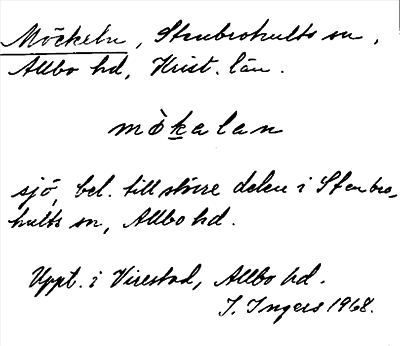 Möckeln, Stenbrohults sn,
Allbo hd, Krist. län.
mòkalan
sjö, bel. till större delen i Stenbro-
hults sn, Allbo hd.
Uppt. i Virestad, Allbo hd.
I. Ingers 1968.